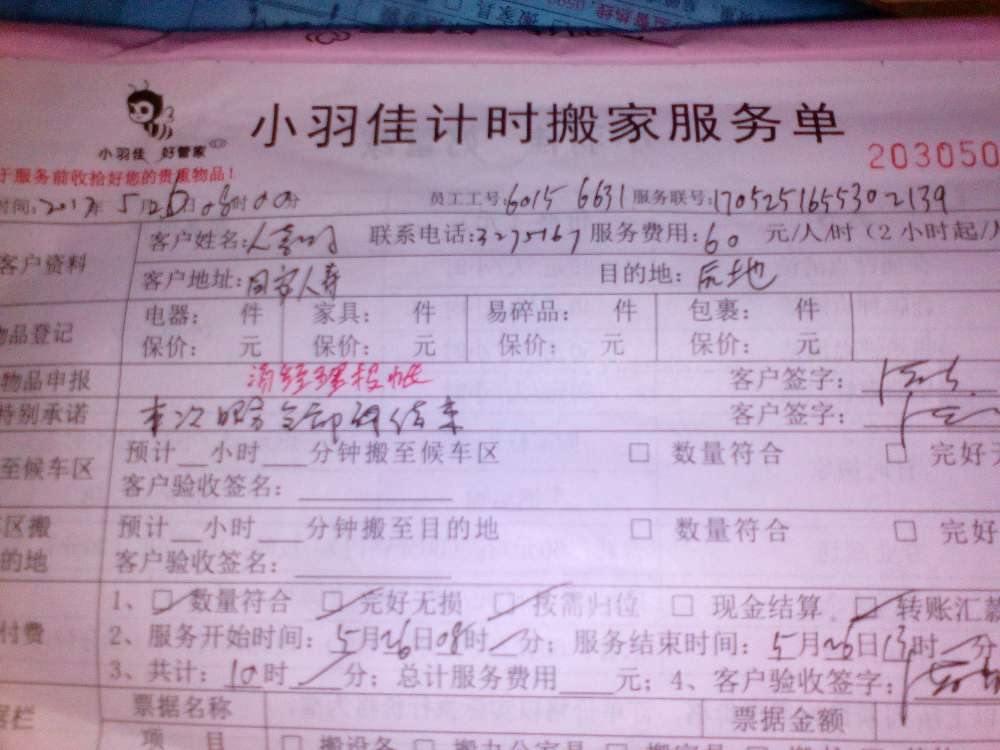 小羽佳计时搬家服务单
小羽佳 好管家
203050
于服务前收拾好您的贵重物品!
时间:2017年5月26日08时00分 员工工号:6015 6631 服务联号:170525165530 2139
客户资料
客户姓名: 联系电话:3275167 服务费用:60 元/人/时(2小时起/人
客户地址:国家人寿 目的地:后地
物品登记
电器: 件 家具: 件 易碎品: 件 包裹: 件
保价: 元 保价: 元 保价: 元 保价: 元
物品申报 客户签字:
特别承诺 本次服务全部 结束 客户签字:
至候车区
预计__小时___分钟搬至候车区 □ 数量符合 □ 完好
客户验收签名:
区搬
的地
预计__小时___分钟搬至目的地 □ 数量符合 □ 完好
客户验收签名:
付费
1、☑数量符合 ☑完好无损 ☑按需归位 □ 现金结算 ☑转账汇款
2、服务开始时间:5月26日08时/分;服务结束时间:5月26日13时/分
3、共计:10时/分;总计服务费用____元;4、客户验收签字:
据栏
票据名称 票据金额
项 目 □ 搬设备 □ 搬办公家具 □ 搬家具